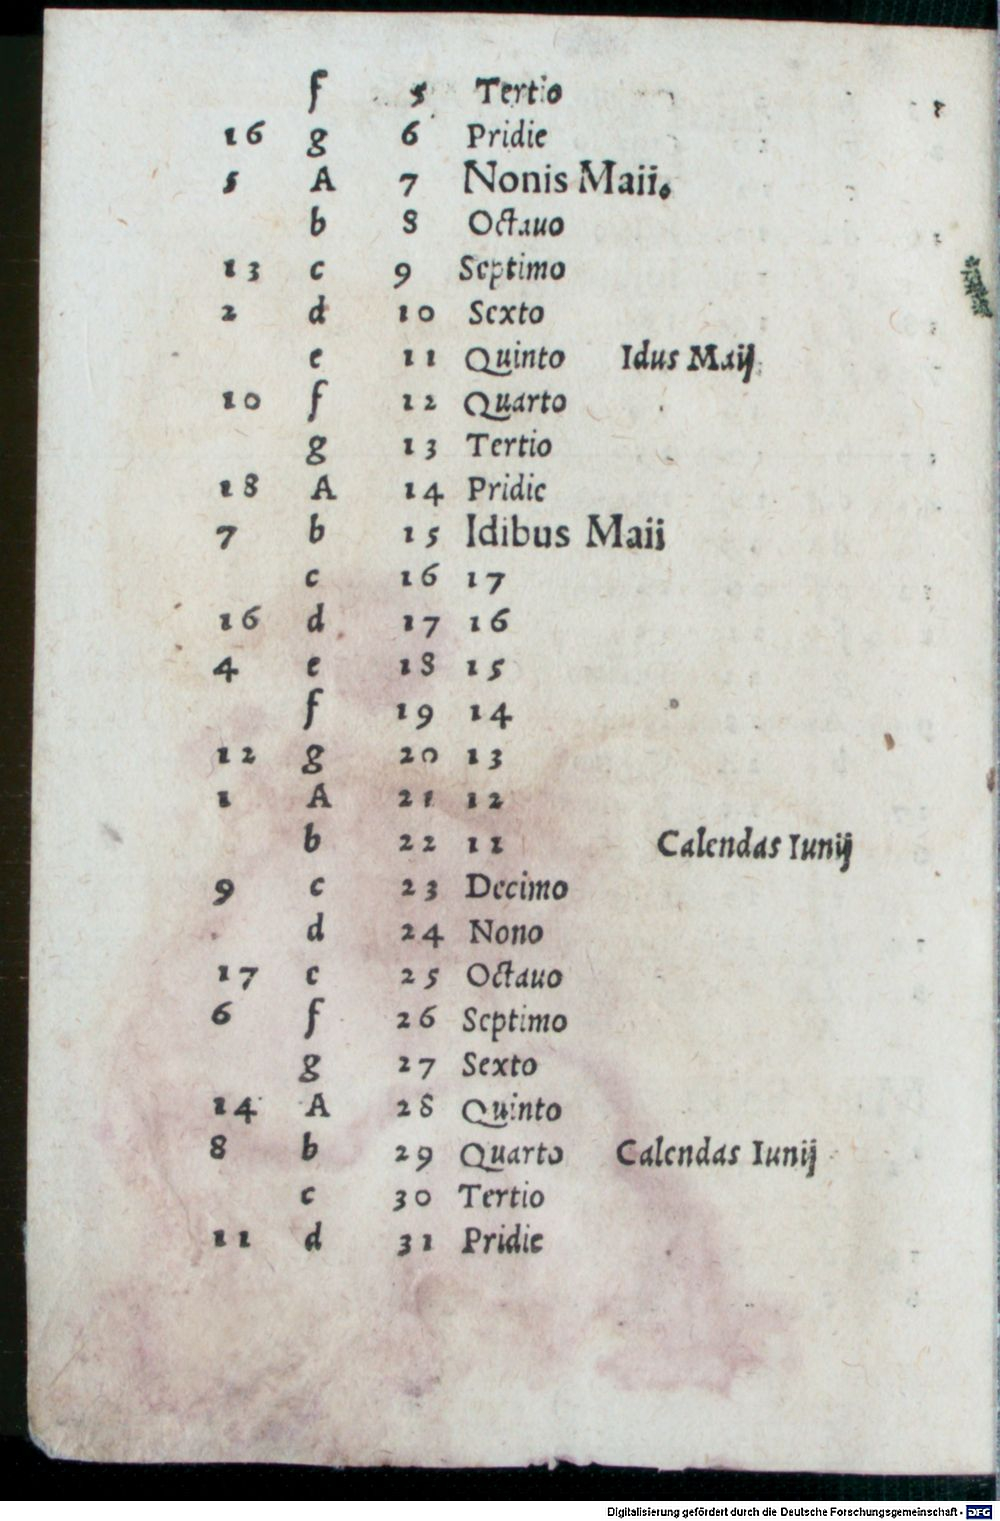 f 5 Tertio
16 g 6 Pridie
5 A 7 Nonis Maii.
b 8 Octauo
13 c 9 Septimo
2 d 10 Sexto
e 11 Quinto Idus Maij
10 f 12 Quarto
g 13 Tertio
18 A 14 Pridie
7 b 15 Idibus Maii
c 16 17
16 d 17 16
4 e 18 15
f 19 14
12 g 20 13
1 A 21 12
b 22 11 Calendas Iunij
9 c 23 Decimo
d 24 Nono
17 e 25 Octauo
6 f 26 Septimo
g 27 Sexto
14 A 28 Quinto
8 b 29 Quarto Calendas Iunij
c 30 Tertio
11 d 31 Pridie
Digitalisierung gefördert durch die Deutsche Forschungsgemeinschaft - DFG